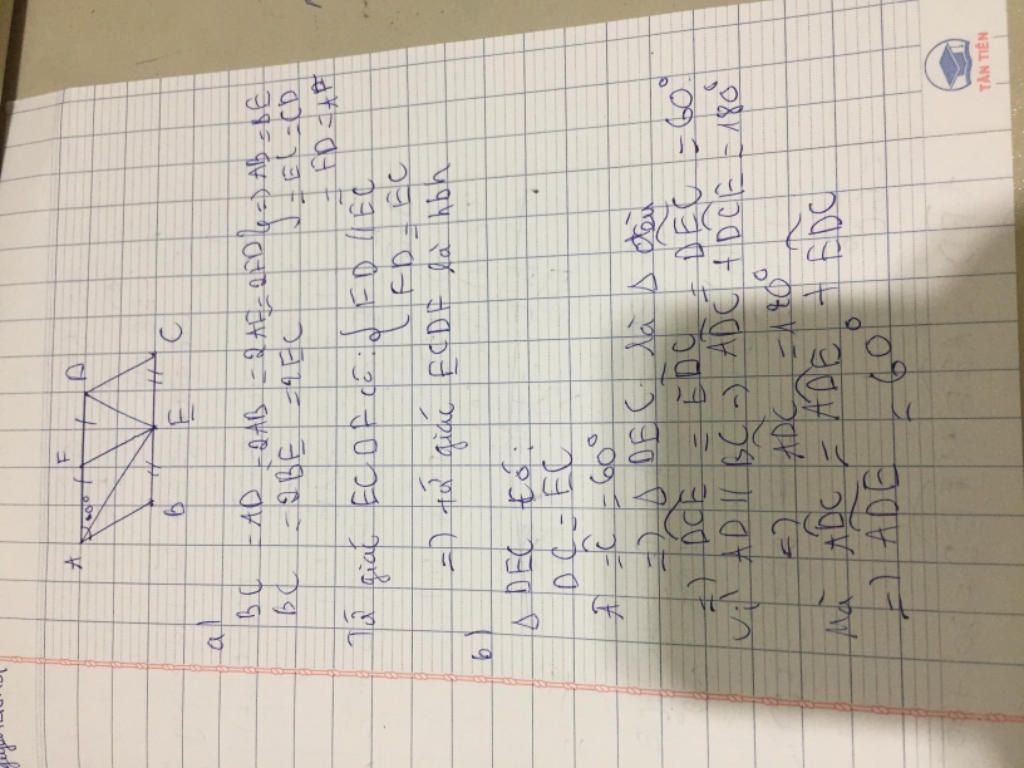 A F D
60°
B E C
a)
BC = AD = 2AB = 2AF = 2FD } => AB = BE
BC = 2BE = 2EC } = EC = CD
= FD = AF
Tứ giác ECDF có: { FD // EC
{ FD = EC
=> tứ giác ECDF là hbh
b)
Δ DEC có:
DC = EC
Â = Ĉ = 60°
=> Δ DEC là Δ đều
=> DCE = EDC = DEC = 60°
Vì AD // BC => ADC + DCE = 180°
=> ADC = 120°
Mà ADC = ADE + EDC
=> ADE = 60°
TÂN TIẾN